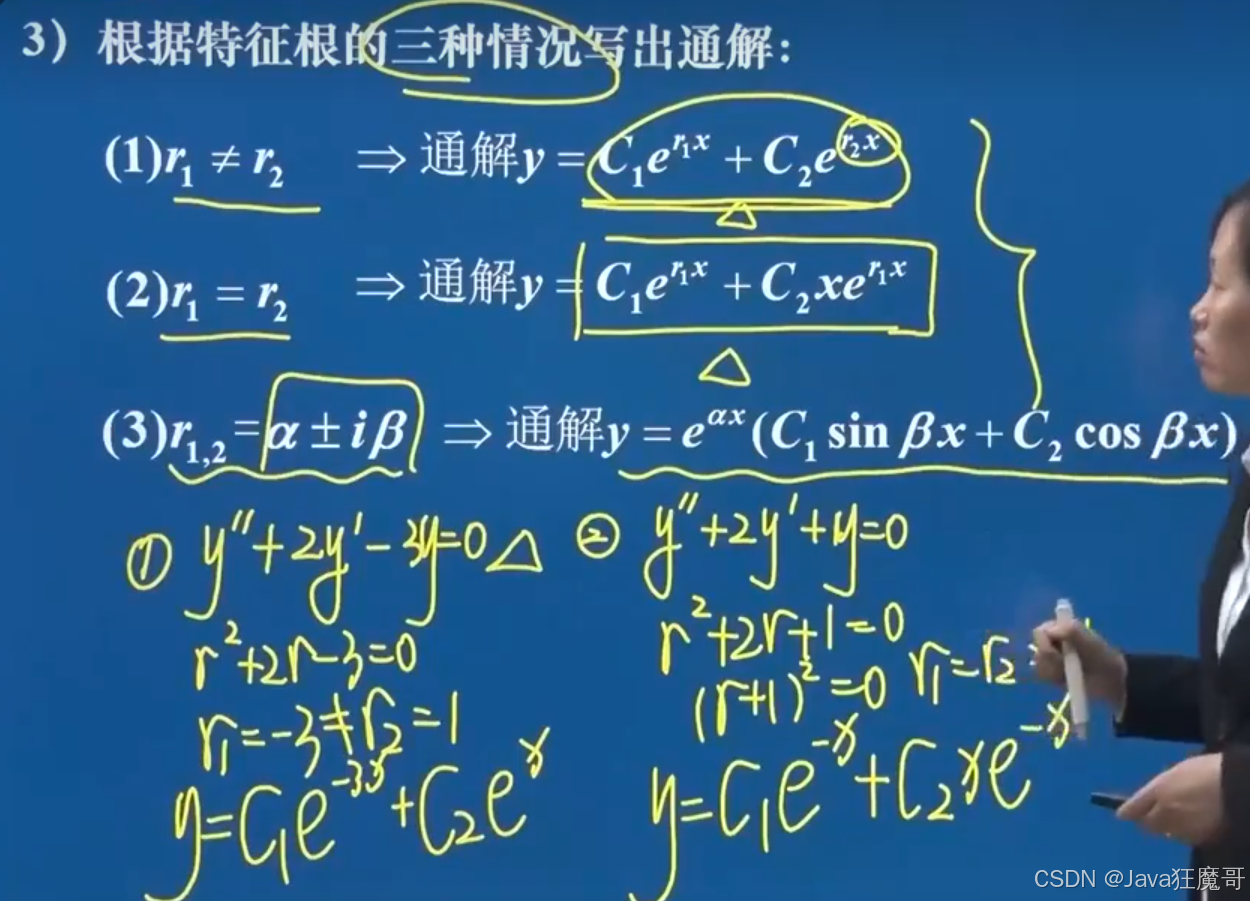 3）根据特征根的三种情况写出通解：
(1)r₁ ≠ r₂ ⇒ 通解y = C₁e^{r₁x} + C₂e^{r₂x}
(2)r₁ = r₂ ⇒ 通解y = C₁e^{r₁x} + C₂xe^{r₁x}
(3)r₁,₂ = α ± iβ ⇒ 通解y = e^{αx}(C₁ sin βx + C₂ cos βx)
① y″+2y′-3y=0 △
r²+2r-3=0
r₁=-3≠r₂=1
y=C₁e^{-3x}+C₂e^{x}
② y″+2y′+y=0
r²+2r+1=0
(r+1)²=0 r₁=r₂=
y=C₁e^{-x}+C₂xe^{-x}
CSDN @Java狂魔哥